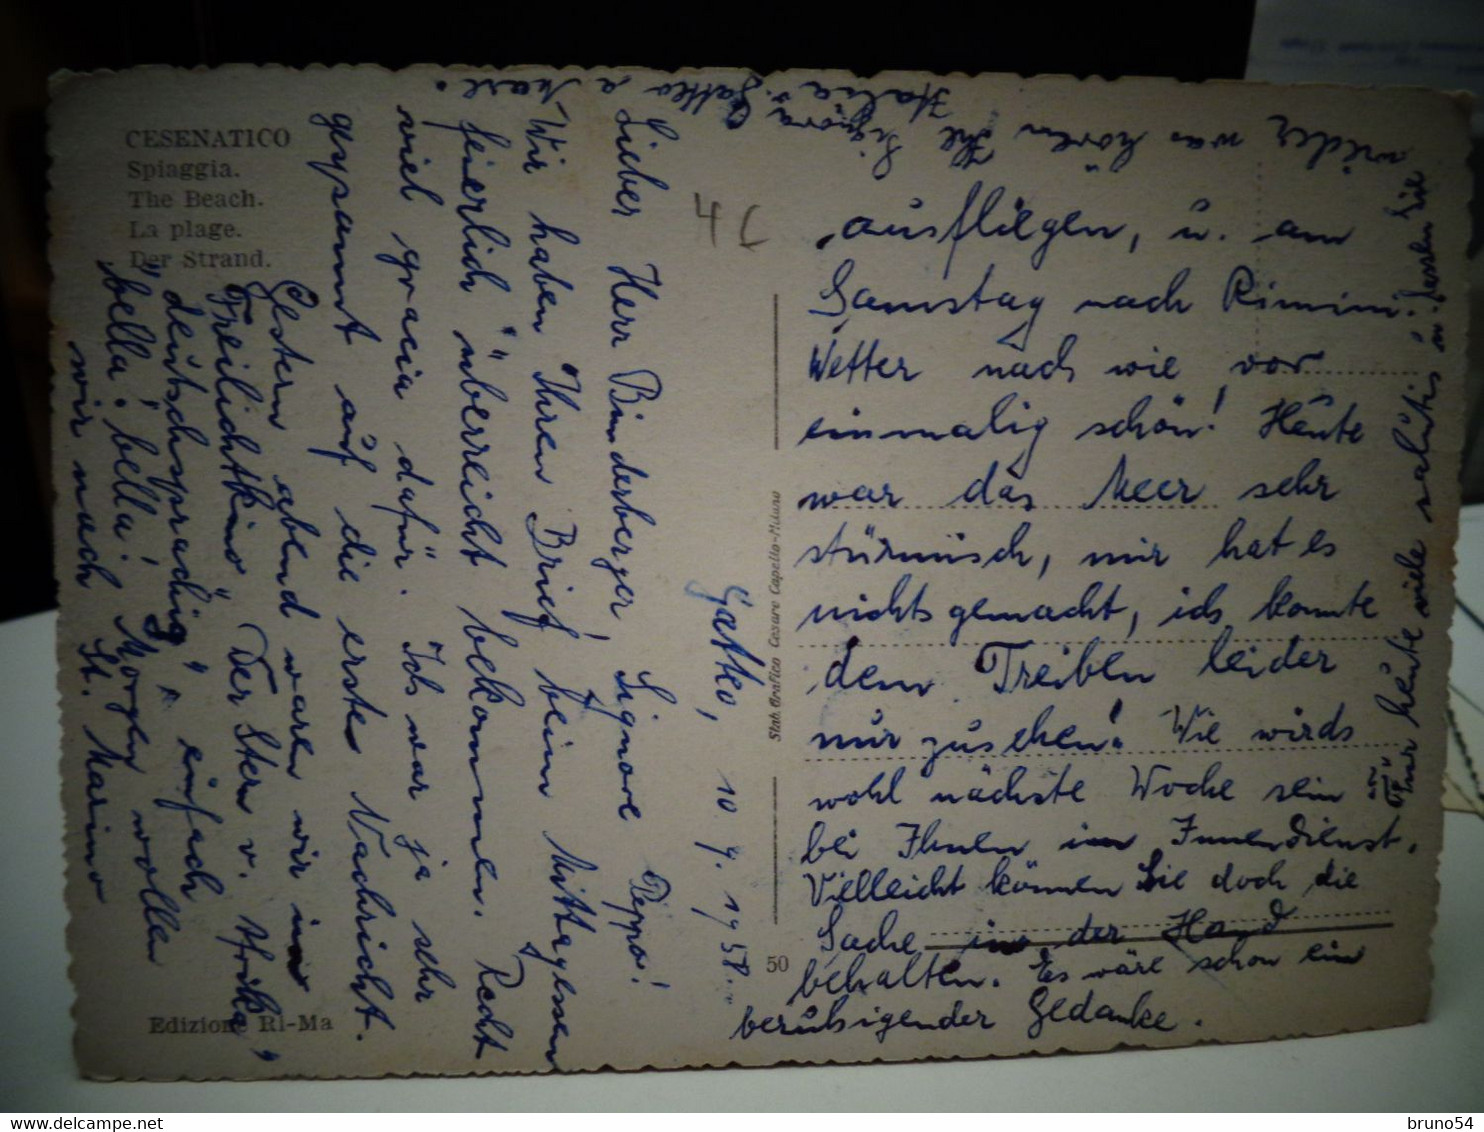 CESENATICO
Spiaggia.
The Beach.
La plage.
Der Strand.
Gatteo, 10.9.1958.
Lieber Herr Binderberger, Signore Peppo!
Wir haben Ihren Brief beim Mittagessen
feierlich "überreicht" bekommen. Recht
viel gracia dafür. Ich war ja sehr
gespannt auf die erste Nachricht.
Gestern abend waren wir im
"Freilichtkino" "Der Stern v. Afrika"
"deutschsprachig", einfach
"bella, bella"! Morgen wollen
wir nach St. Marino
ausfliegen, u. am
Samstag nach Rimini.
Wetter nach wie vor
einmalig schön! Heute
war das Meer sehr
stürmisch, mir hat es
nichts gemacht, ich konnte
dem Treiben leider
nur zusehen! Wie wirds
wohl nächste Woche sein
bei Ihnen im Innendienst.
Vielleicht können Sie doch die
Sache in der Hand
behalten. Es wäre schon ein
beruhigender Gedanke.
Für heute viele salutis u. lassen Sie
wieder was hören Ihre Signora
Italia v. Gatteo a Mare.
Stab. Grafico Cesare Capello-Milano
50
Edizione Ri-Ma
bruno54